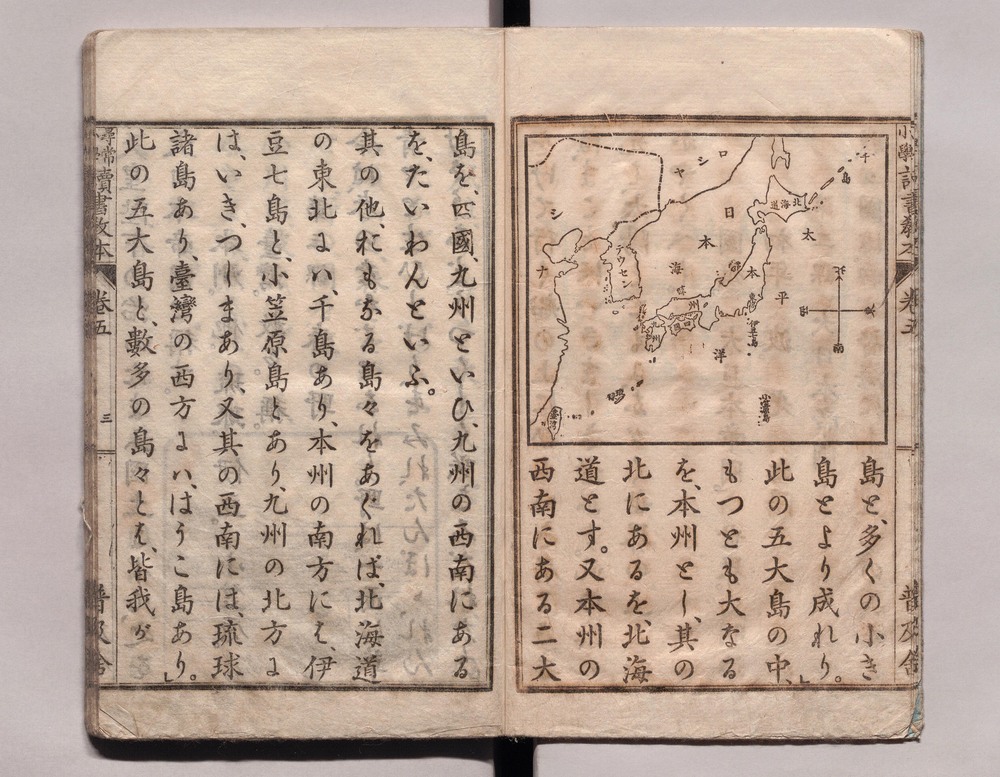 シ
ナ
ロ
シ
ヤ
テウセン
日
本
海
北海道
千
島
太
平
洋
本
州
四国
九州
伊豆七島
小笠原島
琉球
臺湾
北
東
南
西
島と、多くの小き
島とより成れり。」
此の五大島の中、
もつとも大なる
を、本州とし、其の
北にあるを、北海
道とす。又本州の
西南にある二大
島を、四國、九州のといひ、九州の西南にある
を、たいわんといふ。
其の他、おもなる島々をあぐれば、北海道
の東北には、千島あり、本州の南方には、伊
豆七島と、小笠原島とあり、九州の北方に
は、いき、つしまあり、又其の西南には、琉球
諸島あり、臺灣の西方には、はうこ島あり。」
此の五大島と、數多の島々とは、皆我が
尋常小學讀書教本
卷五
三
普及舍